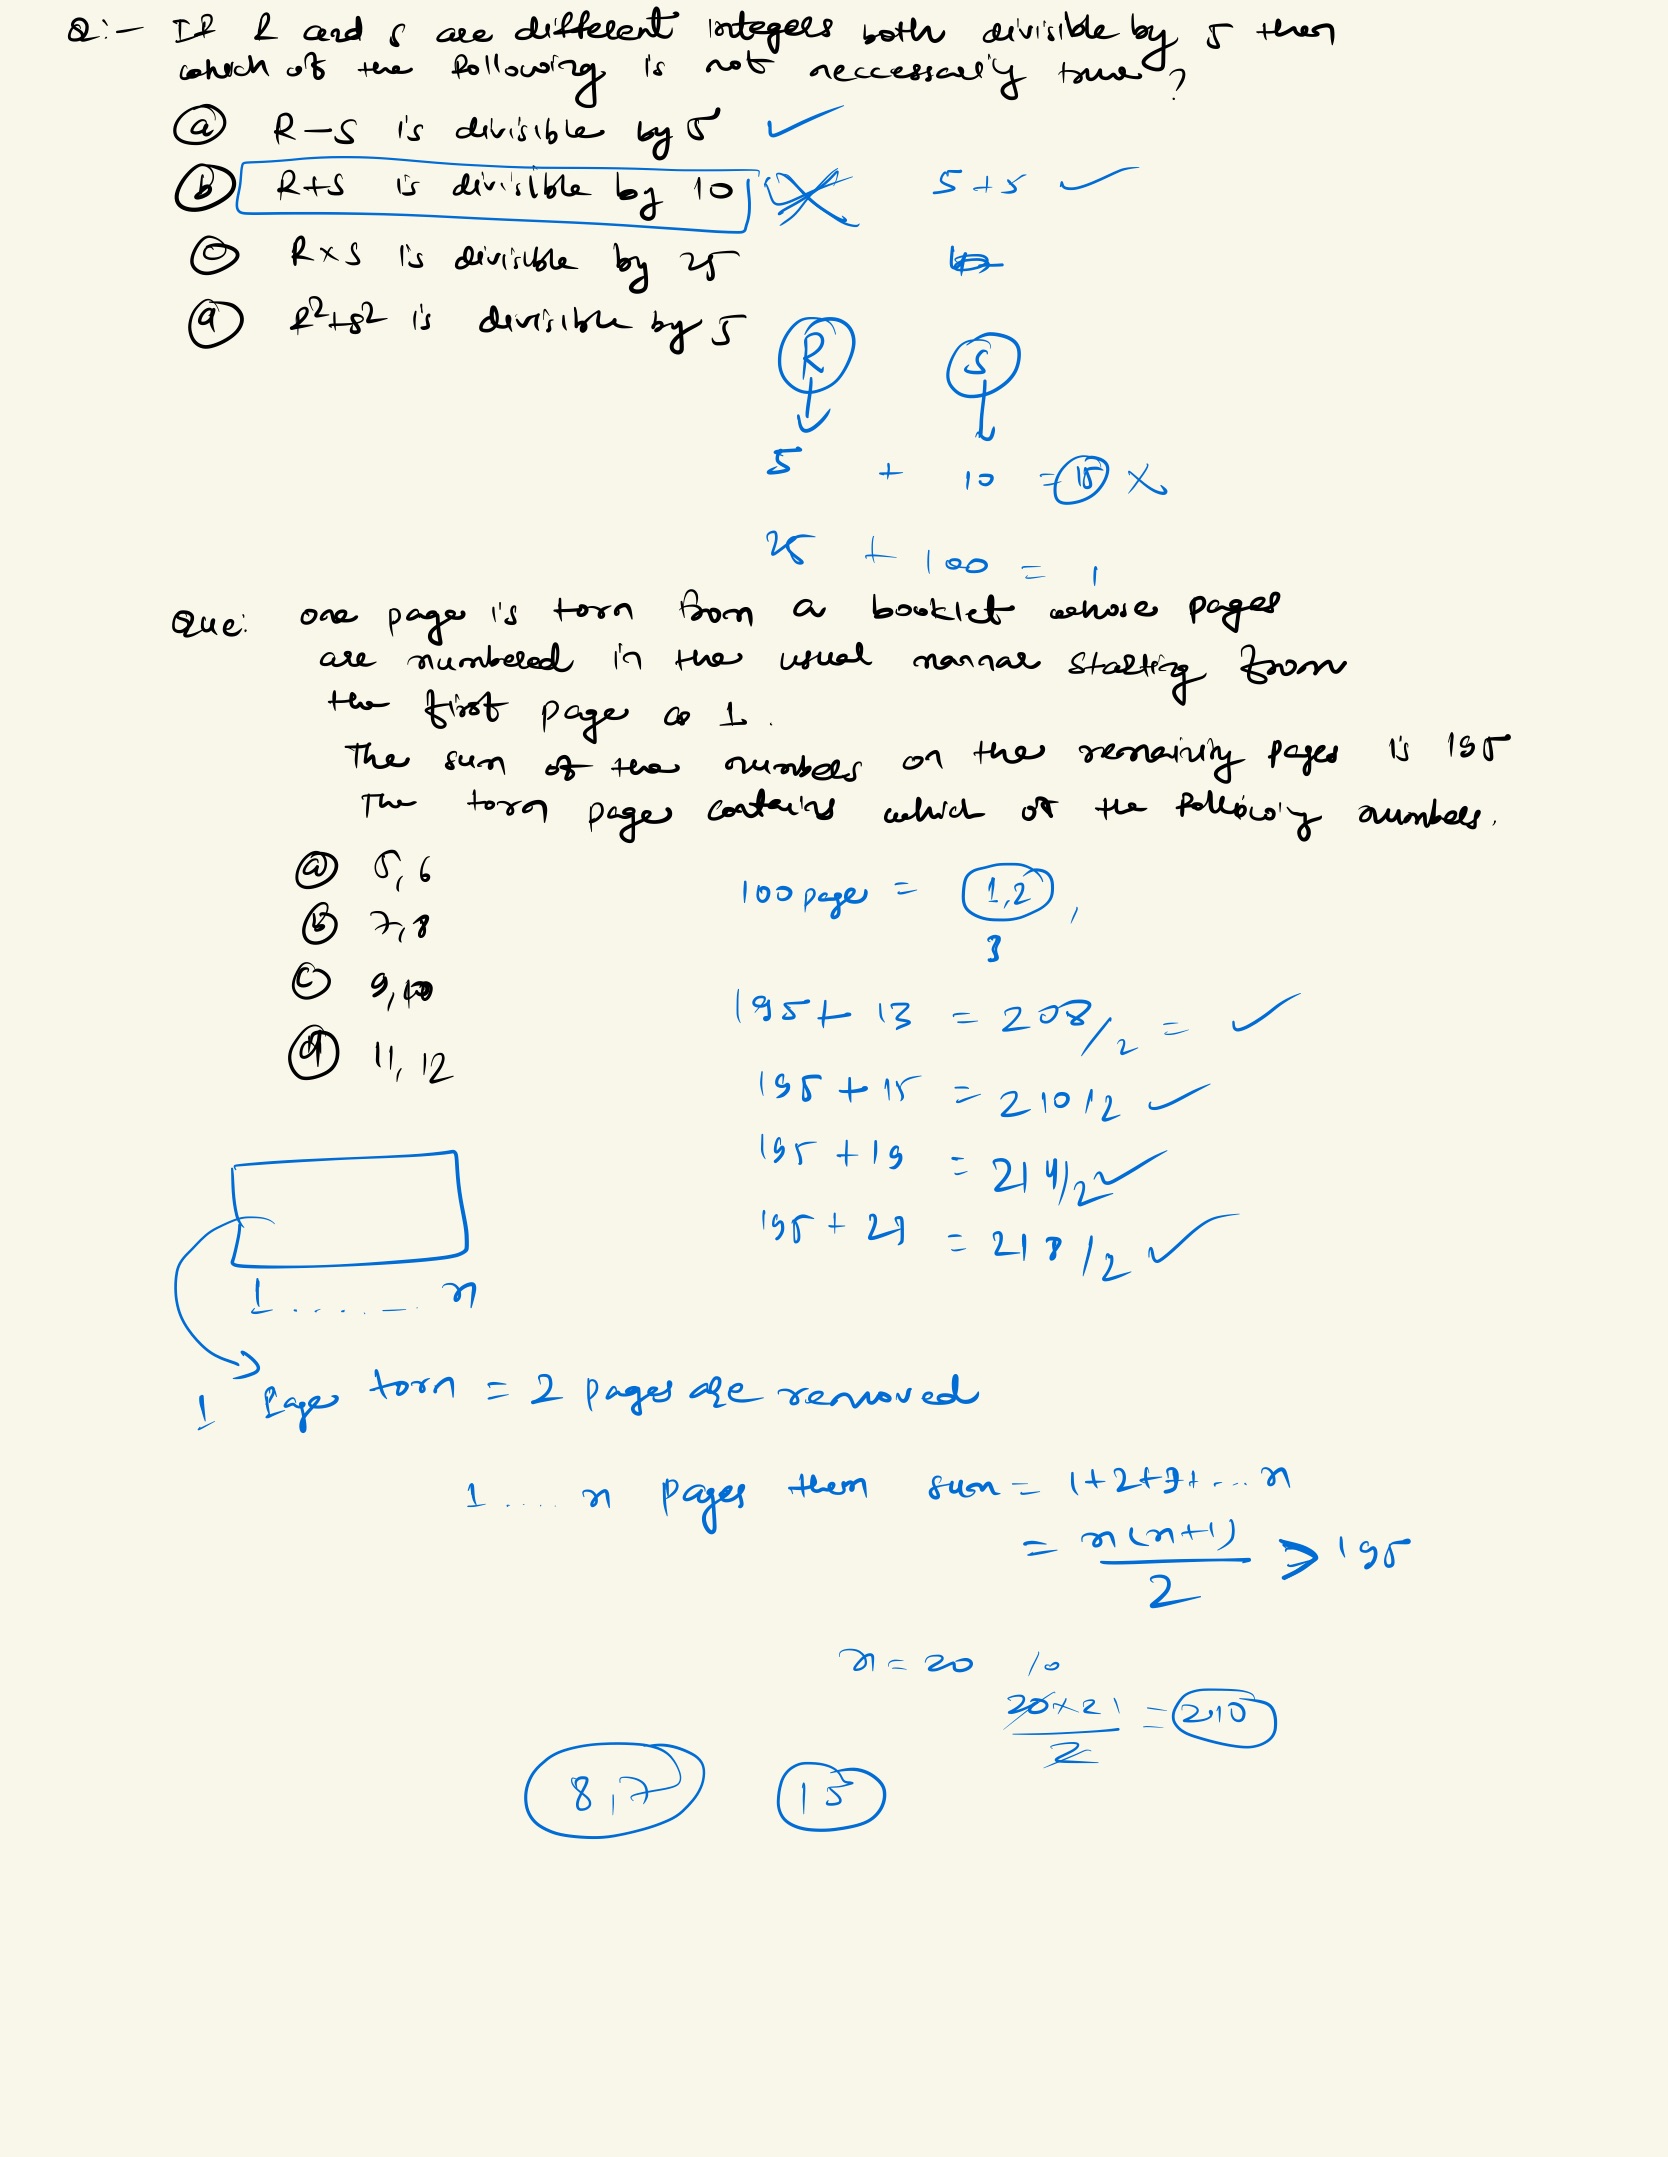 Q:- If R and S are different integers both divisible by 5 then
which of the following is not neccessarily true?
(a) R-S is divisible by 5 ✓
(b) R+S is divisible by 10 5+5 ✓
(c) R×S is divisible by 25
(d) R²+S² is divisible by 5
R S
5 + 10 = 15 ×
25 + 100 = 1
Que: one page is torn from a booklet whose pages
are numbered in the usual mannar starting from
the first page as 1.
The sum of the numbers on the remaining pages is 195
The torn page contains which of the following numbers.
(a) 5,6
(b) 7,8
(c) 9,10
(d) 11,12
100 page = 1,2,
3
195+13 = 208/2 = ✓
195+15 = 210/2 ✓
195+19 = 214/2 ✓
195+23 = 218/2 ✓
1 ...... n
1 Page torn = 2 pages are removed
1 .... n pages then sum = 1+2+3+...n
= n(n+1)/2 > 195
n=20 10
20×21/2 = 210
8,7 15